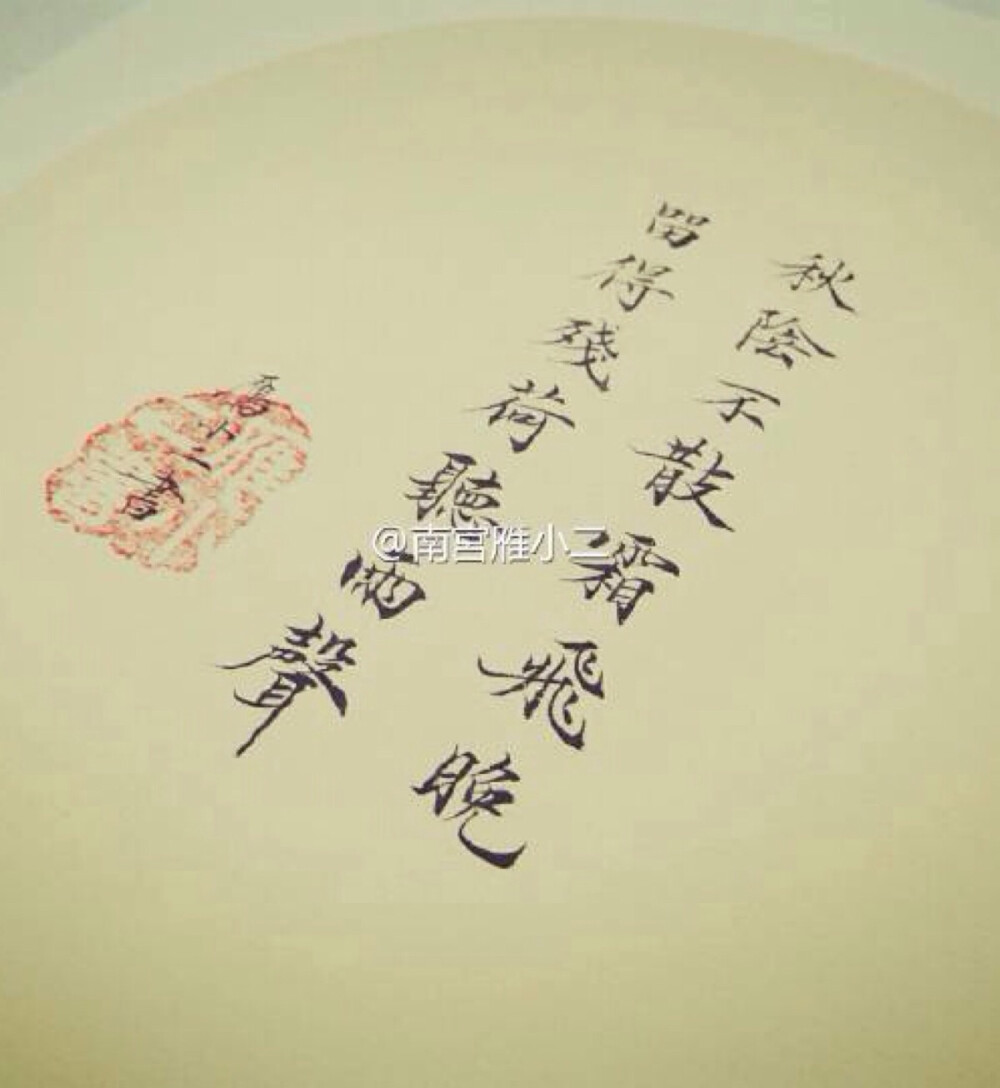 秋陰不散霜飛晚
留得殘荷聽雨聲
小二書
@南宫雁小二